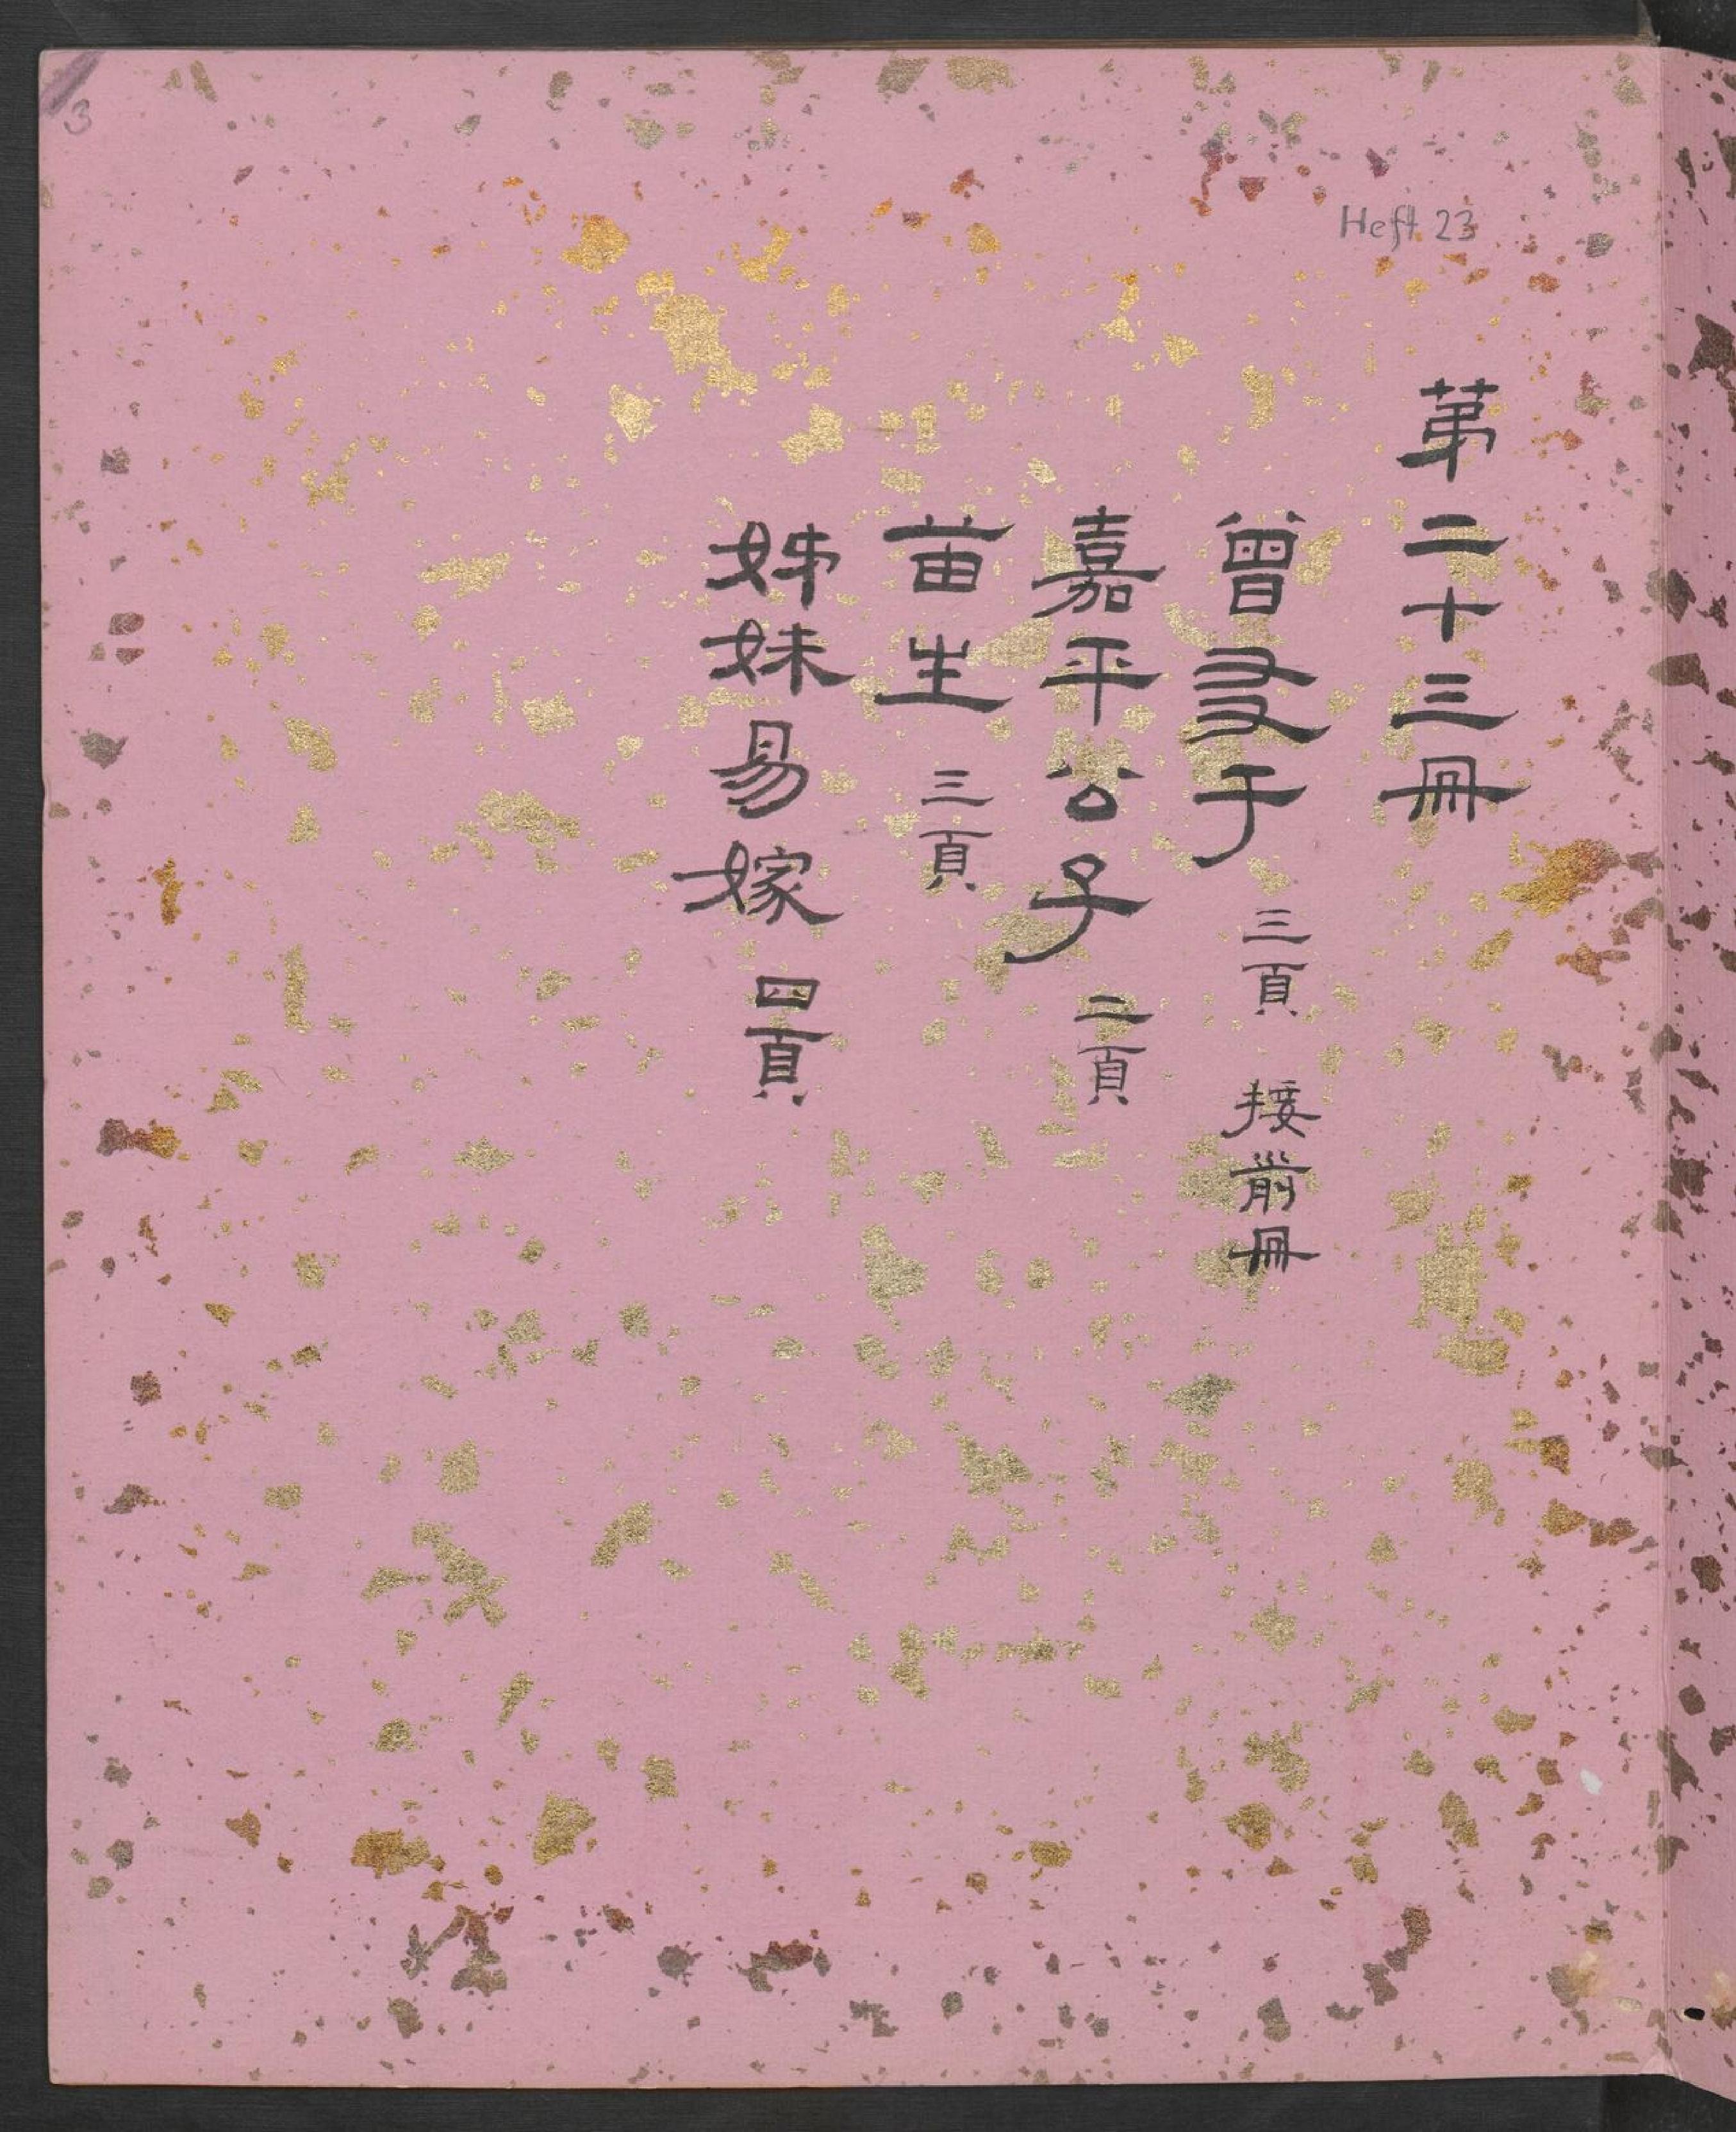 3
Heft 23
第二十三冊
曾友于 三頁 接前冊
嘉平公子 二頁
苗生 三頁
姊妹易嫁 四頁